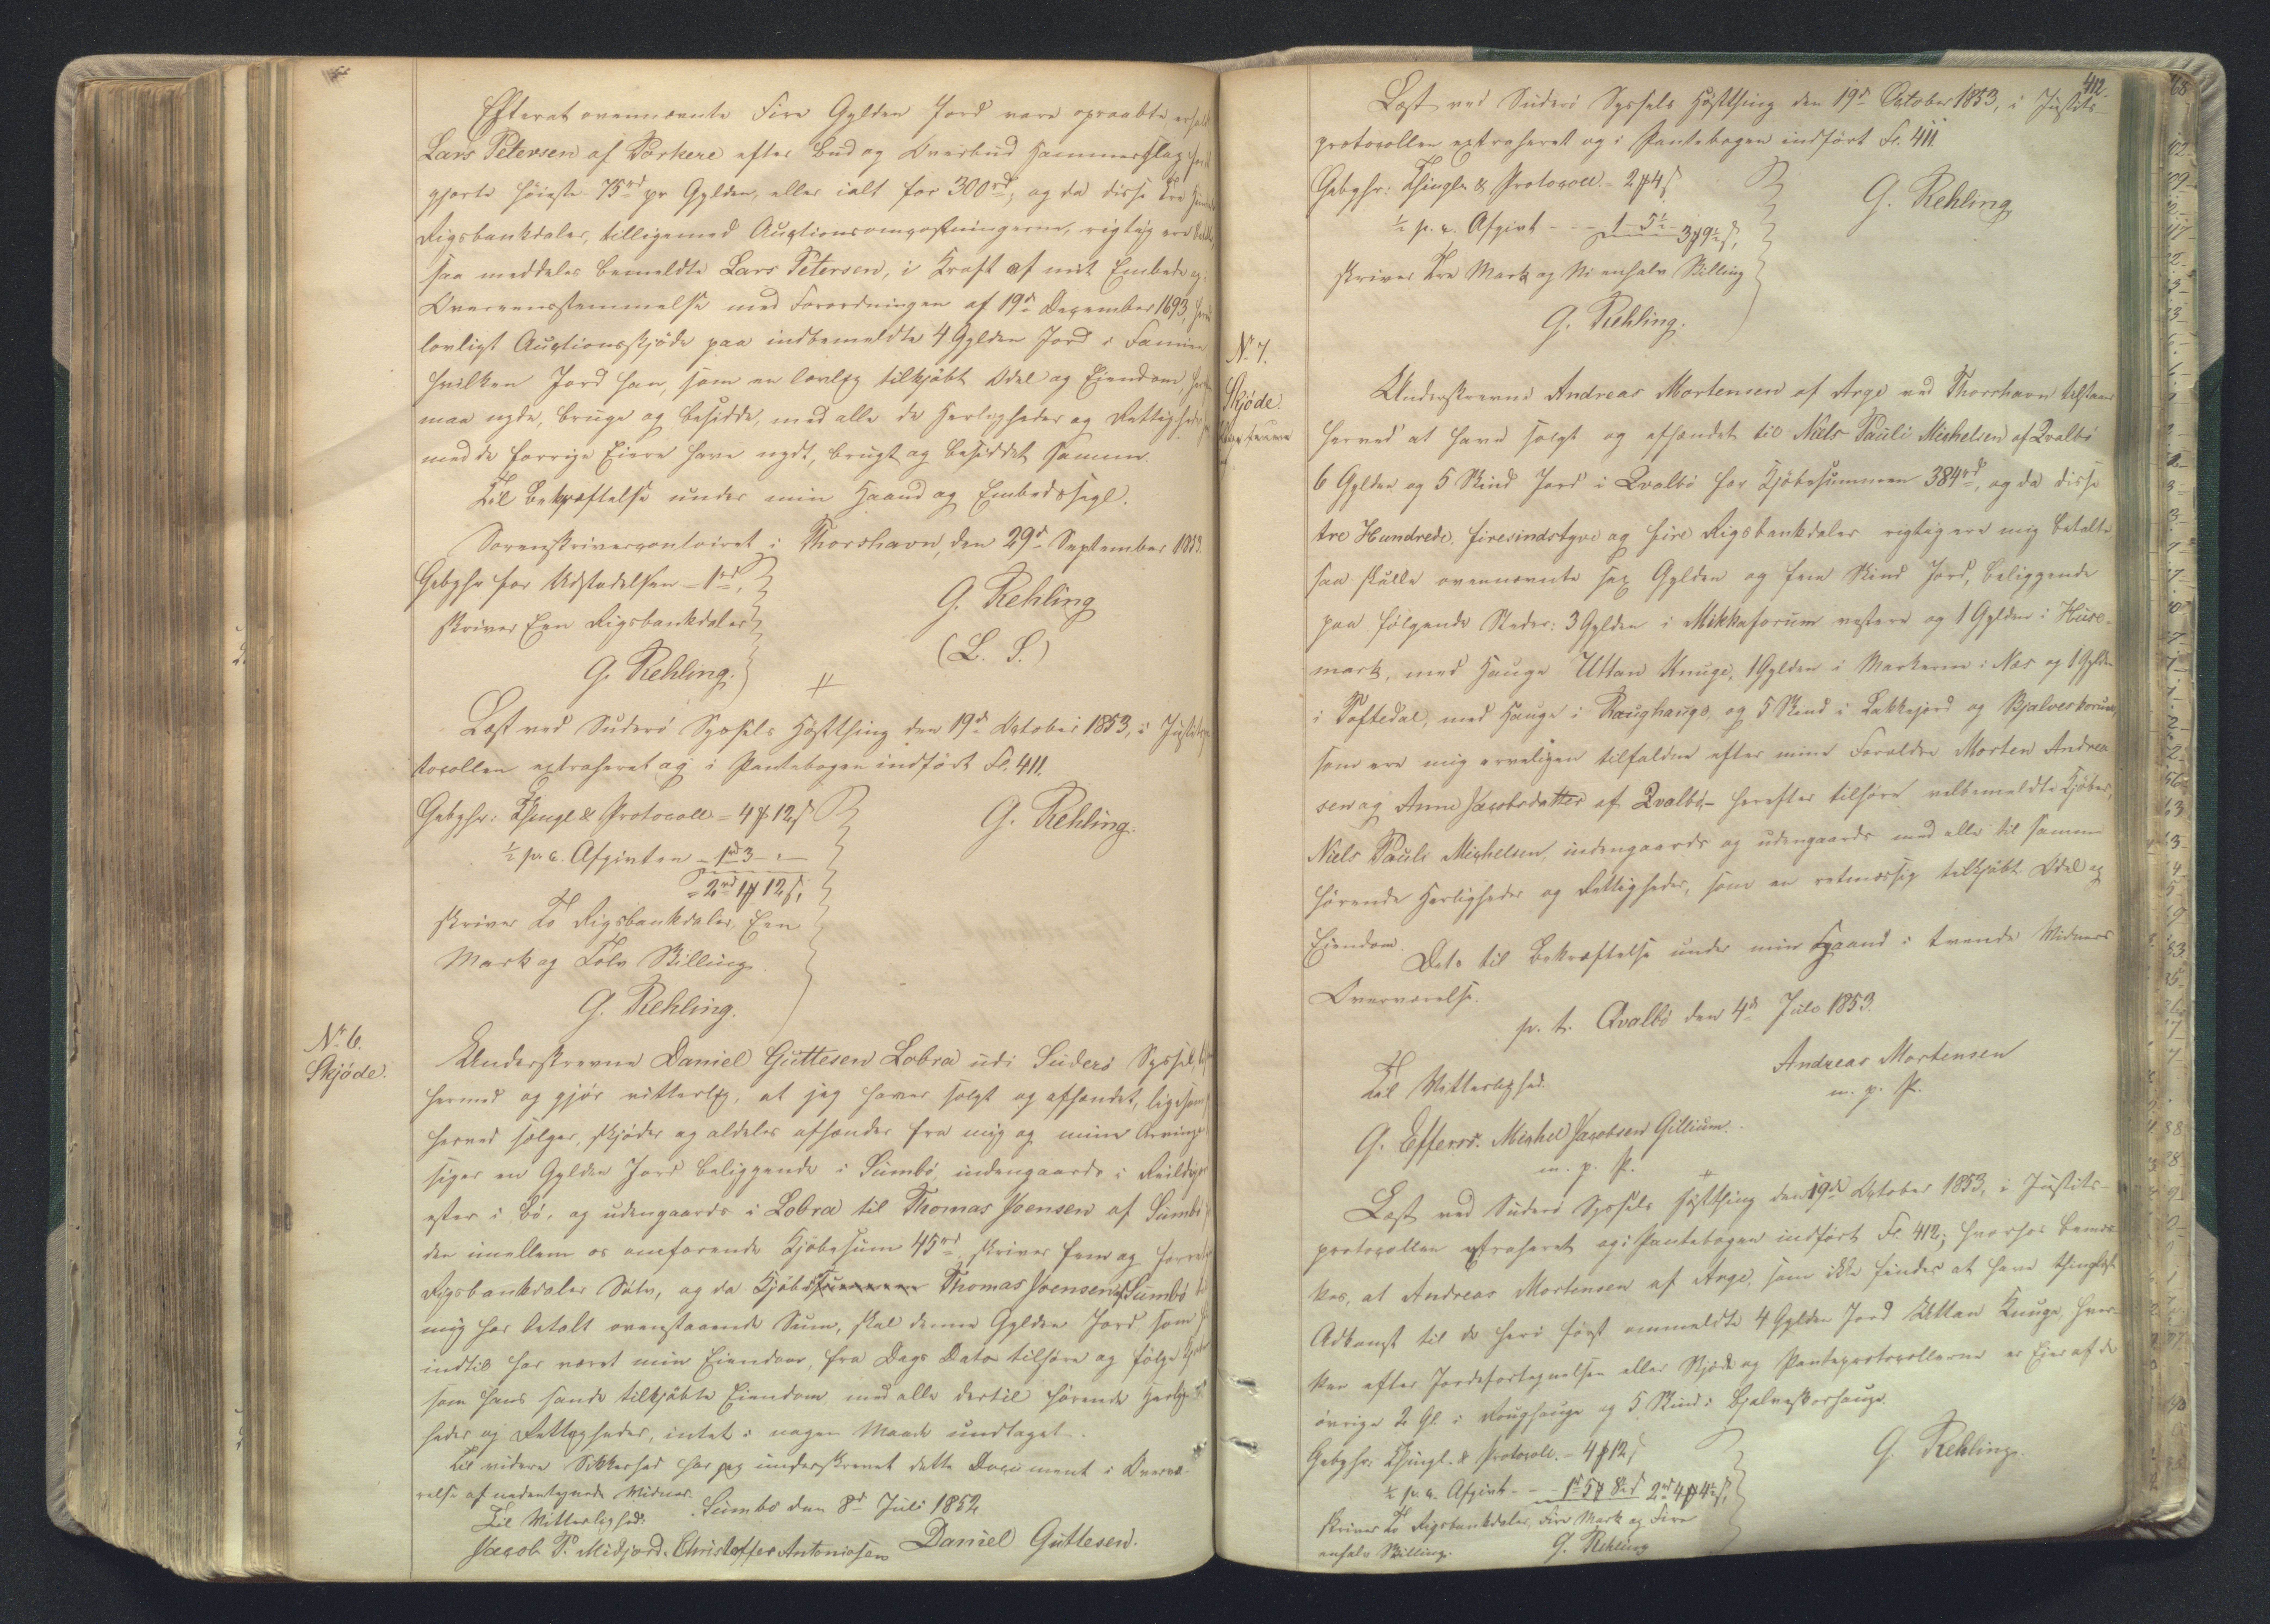 Efterat ovennævnte Fire Gylden Jord vare opraabte erholdt
Lars Petersen af Porkere efter Bud og Overbud Hammerslag for det
gjorte høieste 75rd pr Gylden, eller ialt for 300rd, og da disse Tre Hundrede
Rigsbankdaler, tilligemed Auctionsomkostningerne, rigtig ere betalte,
saa meddeles bemeldte Lars Petersen, i Kraft af mit Embede og i
Overeensstemmelse med Forordningen af 19de December 1693, herved
lovligt Auctionsskjøde paa indbemeldte 4 Gylden Jord i Famien
hvilken Jord han, som en lovlig tilkjøbt Odel og Eiendom herefter
maa nyde, bruge og besidde, med alle de Herligheder og Rettigheder
med de forrige Eiere have nydt, brugt og besiddet samme.
Til Bekræftelse under min Haand og Embedssegl.
Sorenskrivercontoiret i Thorshavn, den 29de September 1853.
Gebyhr for Udstedelsen - 1rd,
skriver Een Rigsbankdaler
G. Rehling
G. Rehling.
(L. S.)
Læst ved Suderö Syssels Høstthing den 19de October 1853, i Justitspro-
tocollen extraheret og i Pantebogen indført Fol. 411.
Gebyhr: Thingl & Protocoll = 4 ₻ 12 ß
½ p. c. Afgivten - 1rd 3 - " -
= 2rd 1 ₻ 12 ß,
skriver To Rigsbankdaler, Een
Mark og Tolv Skilling.
G. Rehling.
G. Rehling.
No 6.
Skjöde.
Underskrevne Daniel Guttesen Lobra udi Suderö Syssel,
hermed og gjør vitterlig, at jeg haver solgt og afhændet, ligesom
herved sælger, skjøder og aldeles afhænder fra mig og mine Arvinger
siger en Gylden Jord beliggende i Sumbö, indengaards i
öster i Bö, og udengaards i Lobra til Thomas Joensen af Sumbö
den imellem os omforende Kjøbesum 45rd, skriver fem og førretyve
Rigsbankdaler Sölv, og da Thomas Joensen af Sumbö
mig har betalt ovenstaaende Sum, skal denne Gylden Jord som
indtil har været min Eiendom, fra Dags Dato tilhøre og følge
som hans sande tilkjøbte Eiendom, med alle dertil hørende Herlig-
heder og Rettigheder, intet i nogen Maade undtaget.
Til videre Sikkerhed har jeg underskrevet dette Document i Overvæ-
relse af undertegnede Vidner.
Sumbö den 8de Juli 1852
Til Vitterlighed:
Jacob P. Midjord. Christoffer Antoniesen Daniel Guttesen.
412.
Læst ved Suderö Syssels Høstthing den 19de October 1853, i Justits-
protocollen extraheret og i Pantebogen indført Fol. 411.
Gebyhr: Thingl. & Protocoll - 2 ₻ 4 ß
½ p. c. Afgivt - - - 1 - 5½ - 3 ₻ 9½ ß,
skriver Tre Mark og Ni enhalv Skilling
G. Rehling
G. Rehling.
No 7.
Skjöde.
Underskrevne Andreas Mortensen af Arge ved Thorshavn tilstaar
herved at have solgt og afhændet til Niels Pauli Michelsen af Qvalbö
6 Gylden og 5 Skind Jord i Qvalbö for Kjøbesummen 384rd, og da disse
tre Hundrede, firesindstyve og fire Rigsbankdaler rigtig ere mig betalte
saa skulle ovennævnte sex Gylden og fem Skind Jord, beliggende
paa følgende Steder: 3 Gylden i Mikkaforum vestere og 1 Gylden i Huse-
mark, med Hauge Uttan Knuge, 1 Gylden i Markerne i Nes og 1 Gylden
i Toftedal, med Hauge i Roughauge, og 5 Skind i Lakkejord og Bjalveskorum,
som ere mig arveligen tilfaldne efter mine Forældre Morten Andrea-
sen og Anne Jacobsdatter af Qvalbö, - herefter tilhøre velbemeldte Kjøber,
Niels Pauli Michelsen, indengaards og udengaards med alle til samme
hørende Herligheder og Rettigheder, som en retmæssig tilkjøbt Odel og
Eiendom.
Dets til Bekræftelse under min Haand i tvende Vidners
Overværelse.
p. t. Qvalbö den 4de Juli 1853.
Andreas Mortensen
m. p. P.
Til Vitterlighed.
G. Effersö. Michel Jacobsen Gillium.
m. p. P.
Læst ved Suderö Syssels Høstthing den 19de October 1853, i Justits-
protocollen extraheret og i Pantebogen indført Fol. 412; hvorhos bemær-
kes, at Andreas Mortensen af Arge, som ikke findes at have thinglæst
Adkomst til de heri først ommeldte 4 Gylden Jord Uttan Knuge, hver-
ken efter Jordefortegnelsen eller Skjøde og Panteprotocollerne er Eier af de
øvrige 2 Gl. i Roughauge og 5 Skind i Bjalveskorhauge.
Gebyhr: Thingl. & Protocoll. - 4 ₻ 12 ß
½ p. c. Afgivt - - 1rd 5 ₻ 8½ ß 2rd 4 ₻ 4½ ß,
skriver To Rigsbankdaler, Fire Mark og Fire
enhalv Skilling.
G. Rehling
G. Rehling.